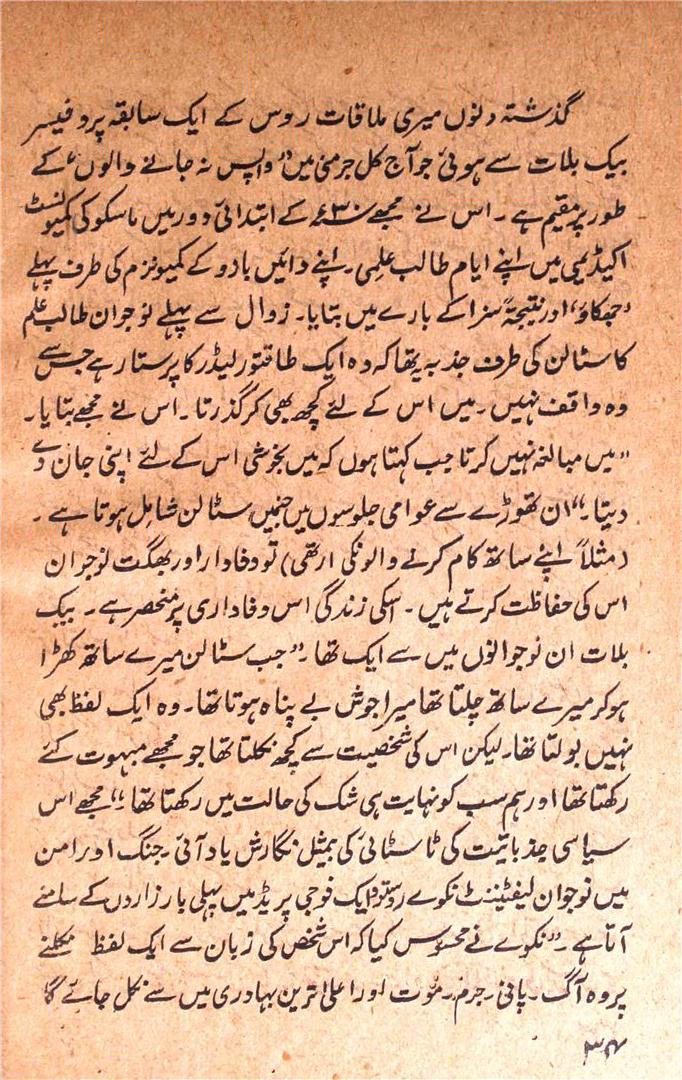 گذشتہ دنوں میری ملاقات روس کے ایک سابقہ پروفیسر
بیک بلات سے ہوئی جو آج کل جرمنی میں ”واپس نہ جانے والوں“ کے
طور پر مقیم ہے۔ اس نے مجھے ۳۰ء کے ابتدائی دور میں ماسکو کی کمیونسٹ
اکیڈیمی میں اپنے ایام طالب علمی۔ اپنے دائیں بادو کے کمیونزم کی طرف پہلے
’جھکاؤ‘ اور نتیجتہً سزا کے بارے میں بتایا۔ زوال سے پہلے نوجوان طالب علم
کا سٹالن کی طرف جذبہ یہ تھا کہ وہ ایک طاقتور لیڈر کا پرستار ہے جس سے
وہ واقف نہیں۔ میں اس کے لئے کچھ بھی کر گذرتا۔ اس نے مجھے بتایا۔
”میں مبالغہ نہیں کرتا جب کہتا ہوں کہ میں بخوشی اس کے لئے اپنی جان دے
دیتا۔“ ان تھوڑے سے عوامی جلوسوں میں جنمیں سٹالن شامل ہوتا ہے۔
(مثلاً اپنے ساتھ کام کرنے والونکی ارتھی) تو وفادار اور بھگت نوجوان
اس کی حفاظت کرتے ہیں۔ اسکی زندگی اس وفاداری پر منحصر ہے۔ بیک
بلات ان نوجوانوں میں سے ایک تھا۔ ”جب سٹالن میرے ساتھ کھڑا
ہو کر میرے ساتھ چلتا تھا میرا جوش بے پناہ ہوتا تھا۔ وہ ایک لفظ بھی
نہیں بولتا تھا۔ لیکن اس کی شخصیت سے کچھ نکلتا تھا جو مجھے مبہوت کئے
رکھتا تھا اور ہم سب کو نہایت ہی شک کی حالت میں رکھتا تھا۔“ مجھے اس
سیاسی جذباتیت کی ٹاسٹائی کی بیمثل نگارش یاد آئی۔ جنگ اور امن
میں نوجوان لیفٹیننٹ نکوے روستوو ایک فوجی پریڈ میں پہلی بار زار دں کے سامنے
آتا ہے۔ ”نکوے نے محسوس کیا کہ اس شخص کی زبان سے ایک لفظ نکلنے
پر وہ آگ۔ پانی۔ جرم۔ موت اور اعلیٰ ترین بہادری میں سے نکل جائے گا
۳۷